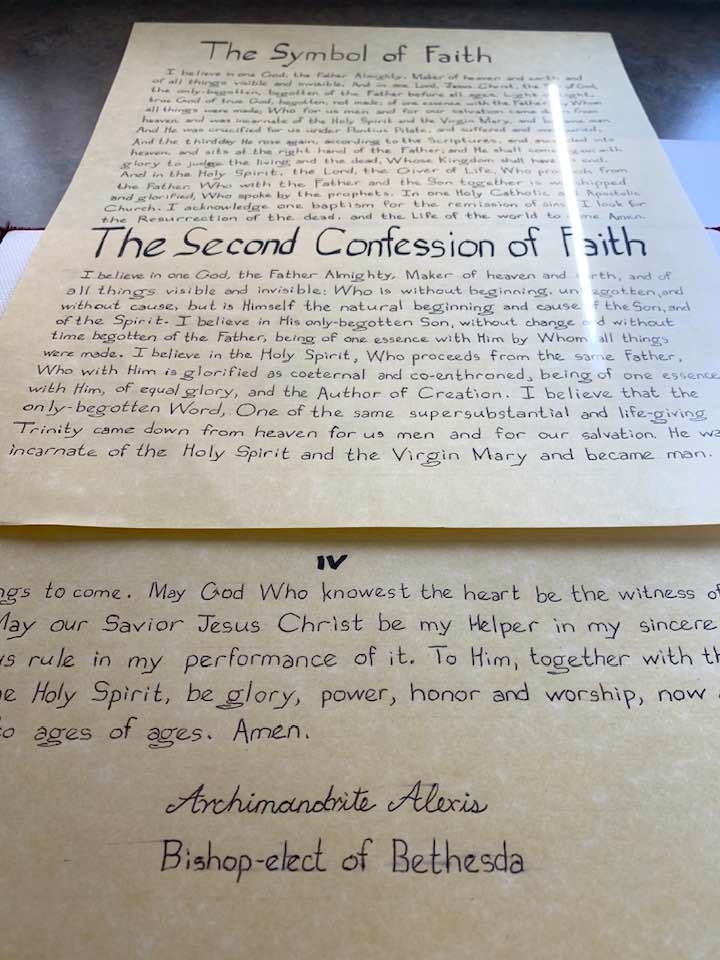 The Symbol of Faith
I believe in one God, the Father Almighty, Maker of heaven and earth and
of all things visible and invisible. And in one Lord, Jesus Christ, the of God,
the only-begotten, begotten of the Father before all ages. Light
true God of true God, begotten, not made; of one essence with the Father, Whom
all things were made; Who for us men and for our salvation came from
heaven and was incarnate of the Holy Spirit and the Virgin Mary, and man
And He was crucified for us under Pontius Pilate, and suffered and
And the third day He rose again, according to the Scriptures, and into
heaven, and sits at the right hand of the Father; and He shall come with
glory to judge the living and the dead, Whose Kingdom shall have end.
And in the Holy Spirit, the Lord, the Giver of Life, Who from
the Father, Who with the Father and the Son together is
and glorified, Who spoke by the prophets. In one Holy Catholic Apostolic
Church. I acknowledge one baptism for the remission of sins I look for
the Resurrection of the dead, and the Life of the world to Amen.
The Second Confession of Faith
I believe in one God, the Father Almighty, Maker of heaven and and of
all things visible and invisible: Who is without beginning, and
without cause, but is Himself the natural beginning and cause the Son, and
of the Spirit. I believe in His only-begotten Son, without change without
time begotten of the Father, being of one essence with Him by Whom all things
were made. I believe in the Holy Spirit, Who proceeds from the same Father,
Who with Him is glorified as coeternal and co-enthroned, being of one essence
with Him, of equal glory, and the Author of Creation. I believe that the
only-begotten Word, One of the same supersubstantial and life-giving
Trinity came down from heaven for us men and for our salvation. He wa
incarnate of the Holy Spirit and the Virgin Mary and became man.
IV
ngs to come. May God Who knowest the heart be the witness of
May our Savior Jesus Christ be my Helper in my sincere
rule in my performance of it. To Him, together with th
Holy Spirit, be glory, power, honor and worship, now
ages of ages. Amen.
Archimandrite Alexis
Bishop-elect of Bethesda